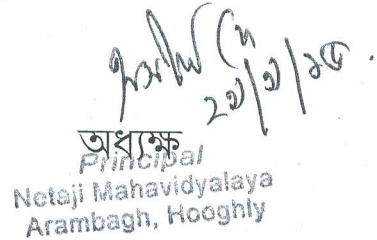 অধ্যক্ষ
Principal
Netaji Mahavidyalaya
Arambagh, Hooghly